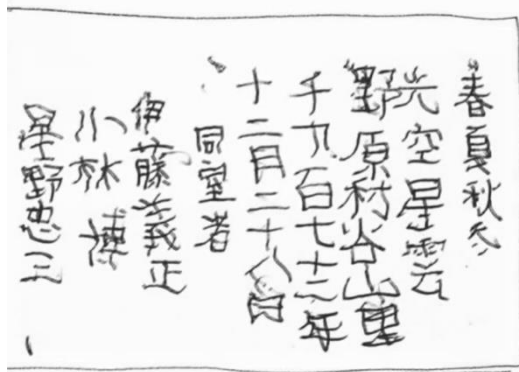 春夏秋冬
光空星雲
野原村谷山里
千九百七十二年
十二月二十八日
同室者
伊藤義正
小林博
星野忠三